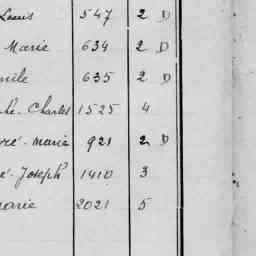 Louis 547 2 D
Marie 634 2 D
mile 635 2 D
Charles 1525 4
ré-Marie 921 2 D
é-Joseph 1410 3
marie 2021 5